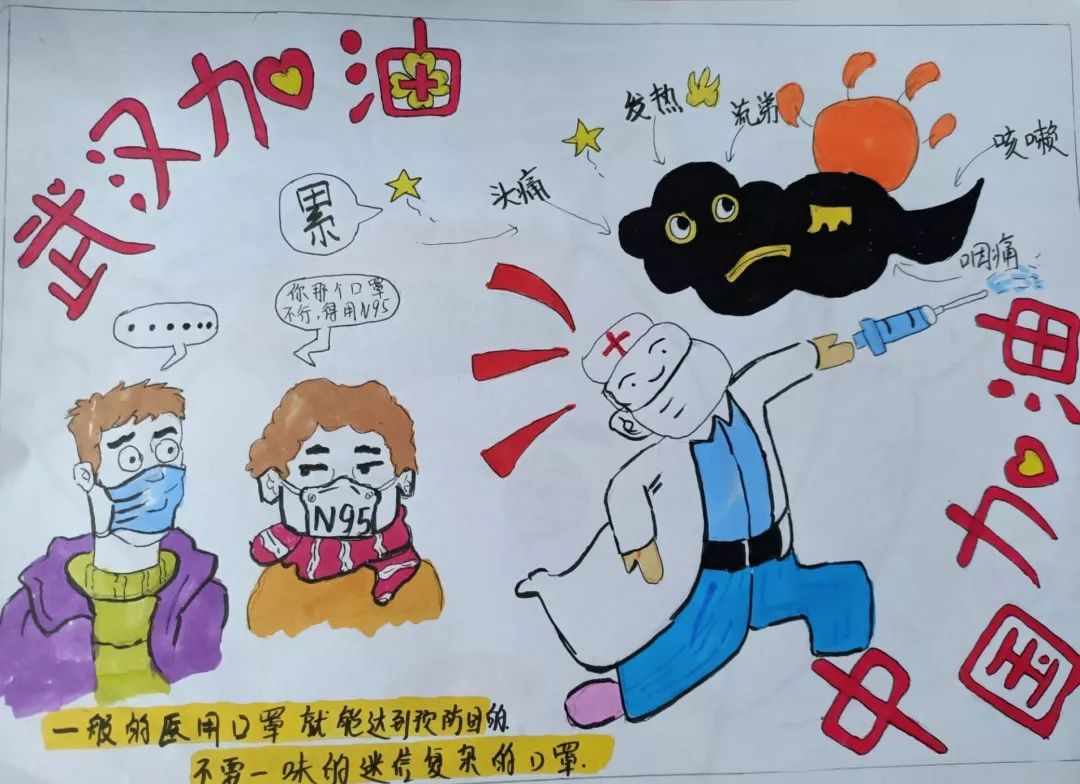 武汉加油
发热
流弟
咳嗽
头痛
累
咽痛
你那个口罩
不行,得用N95
......
N95
中国加油
一般的医用口罩就能达到预防目的.
不要一味的迷信复杂的口罩.